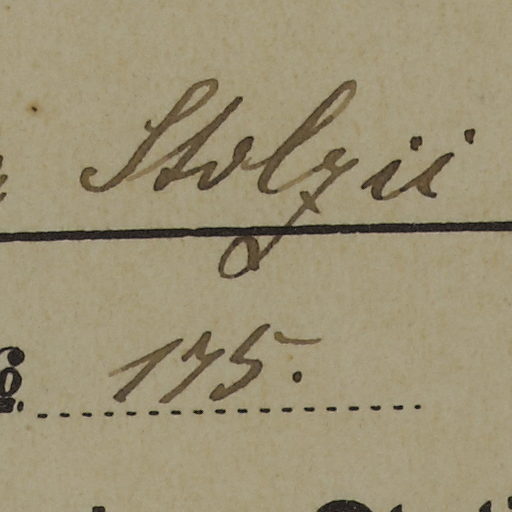 Stolzii
№ 175.